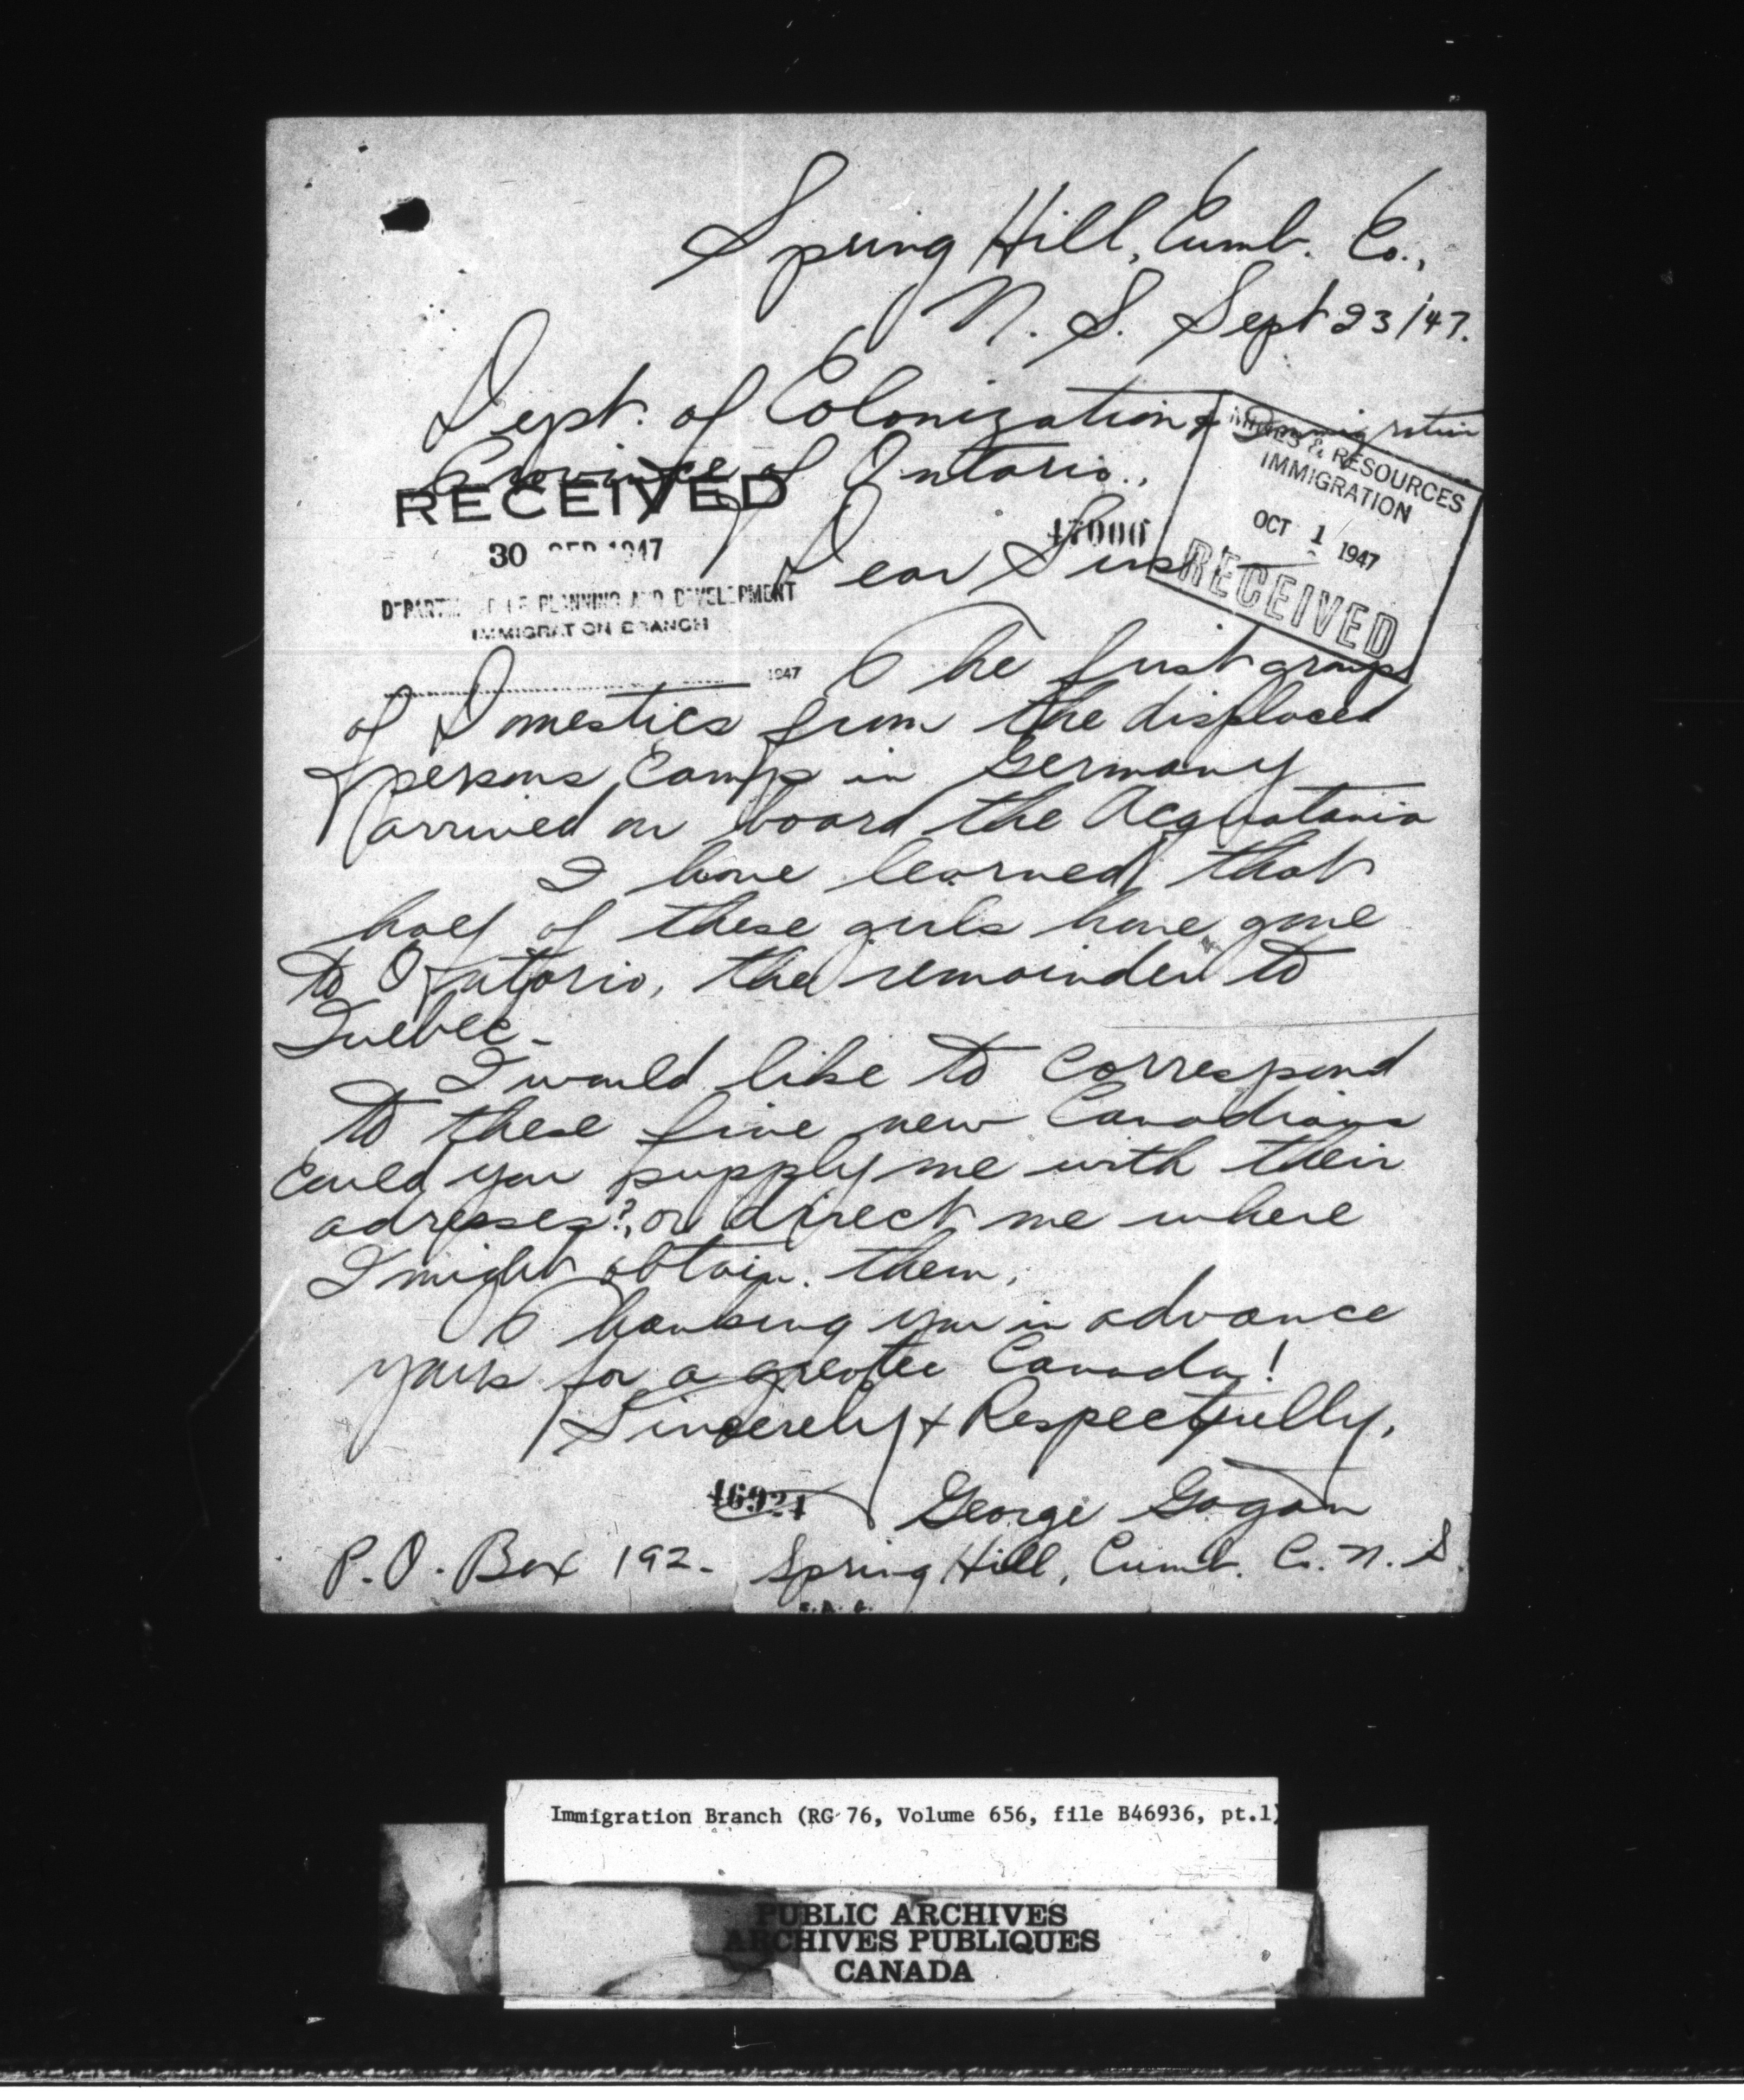 Spring Hill, Cumb. Co.,
N. S. Sept 23/47.
Dept. of Colonization & Immigration
Province of Ontario.,
RECEIVED
30 SEP 1947
DEPARTMENT OF PLANNING AND DEVELOPMENT
IMMIGRATION BRANCH
1947
MINES & RESOURCES
IMMIGRATION
OCT 1 1947
RECEIVED
47000
Dear Sirs
The first group
of Domestics from the displaced
persons Camps in Germany
arrived on board the Acquatania
I have learned that
half of these girls have gone
to Ontario, the remainder to
Quebec-
I would like to correspond
to these fine new Canadians
Could you supply me with their
adresses?, or direct me where
I might obtain them.
Thanking you in advance
yours for a greater Canada!
Sincerely & Respectfully,
46921
George Gogan
P.O. Box 192- Spring Hill, Cumb. Co. N. S.
Immigration Branch (RG 76, Volume 656, file B46936, pt.1)
PUBLIC ARCHIVES
ARCHIVES PUBLIQUES
CANADA